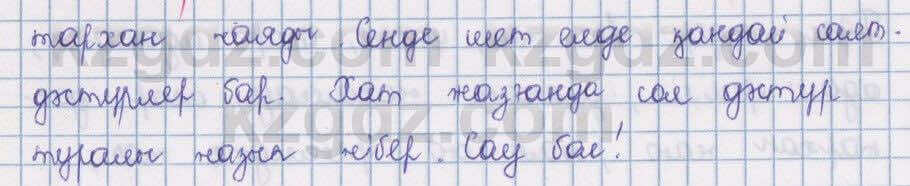 тархан жаяды. Сенде шет елде қандай салт-
дәстүрлер бар. Хат жазғанда сол дәстүр
туралы жазып жібер. Сау бол!
kzgdz.com